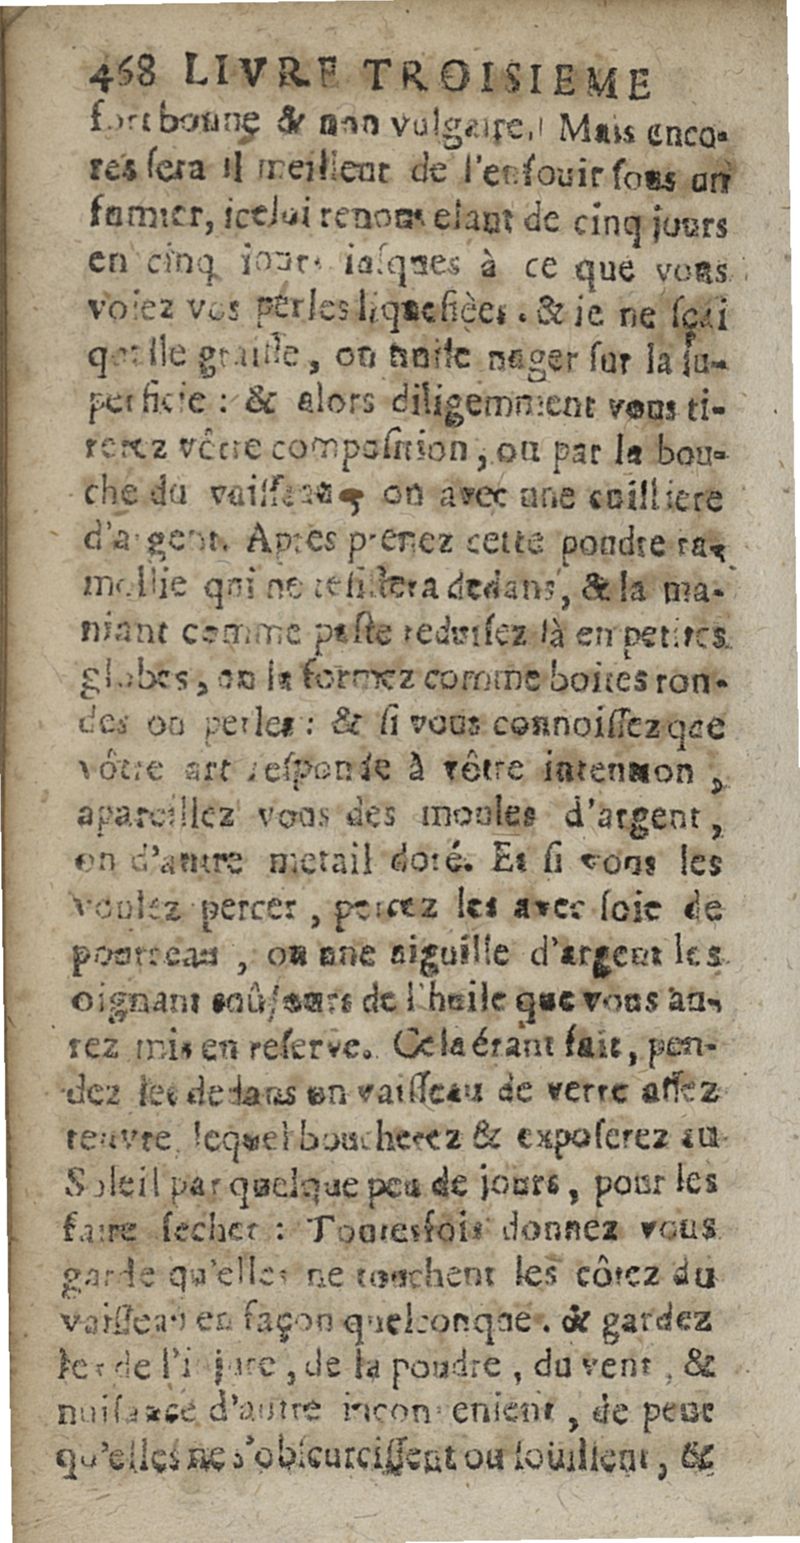 468 LIVRE TROISIEME
fort bonne & non vulgaire. Mais enco-
res sera il meilleur de l'enfouir sous un
fumier, icelui renouvelant de cinq jours
en cinq jours jusques à ce que vous
voiez vos perles liquefiées. & je ne sçai
quelle graisse, ou huile nager sur la su-
perficie : & alors diligemment vous ti-
rerez vôtre composition, ou par la bou-
che du vaisseau, ou avec une cuilliere
d'argent. Apres prenez cette poudre ra-
mollie qui ne resistera dedans, & la ma-
niant comme paste reduisez là en petites
globes, ou la formez comme boites ron-
des ou perles : & si vous connoissez que
vôtre art responde à vôtre intention,
apareillez vous des moules d'argent,
ou d'autre metail doré. Et si vous les
voulez percer, percez les avec soie de
pourceau, ou une aiguille d'argent les
oignant toûjours de l'huile que vous au-
rez mis en reserve. Cela étant fait, pen-
dez les dedans un vaisseau de verre assez
lequel boucherez & exposerez au
Soleil par quelque peu de jours, pour les
faire secher : Toutesfois donnez vous
garde qu'elles ne touchent les côtez du
vaisseau en façon quelconque. & gardez
les de l'injure, de la poudre, du vent, &
nuisance d'autre inconvenient, de peur
qu'elles ne s'obscurcissent ou soüillent, &